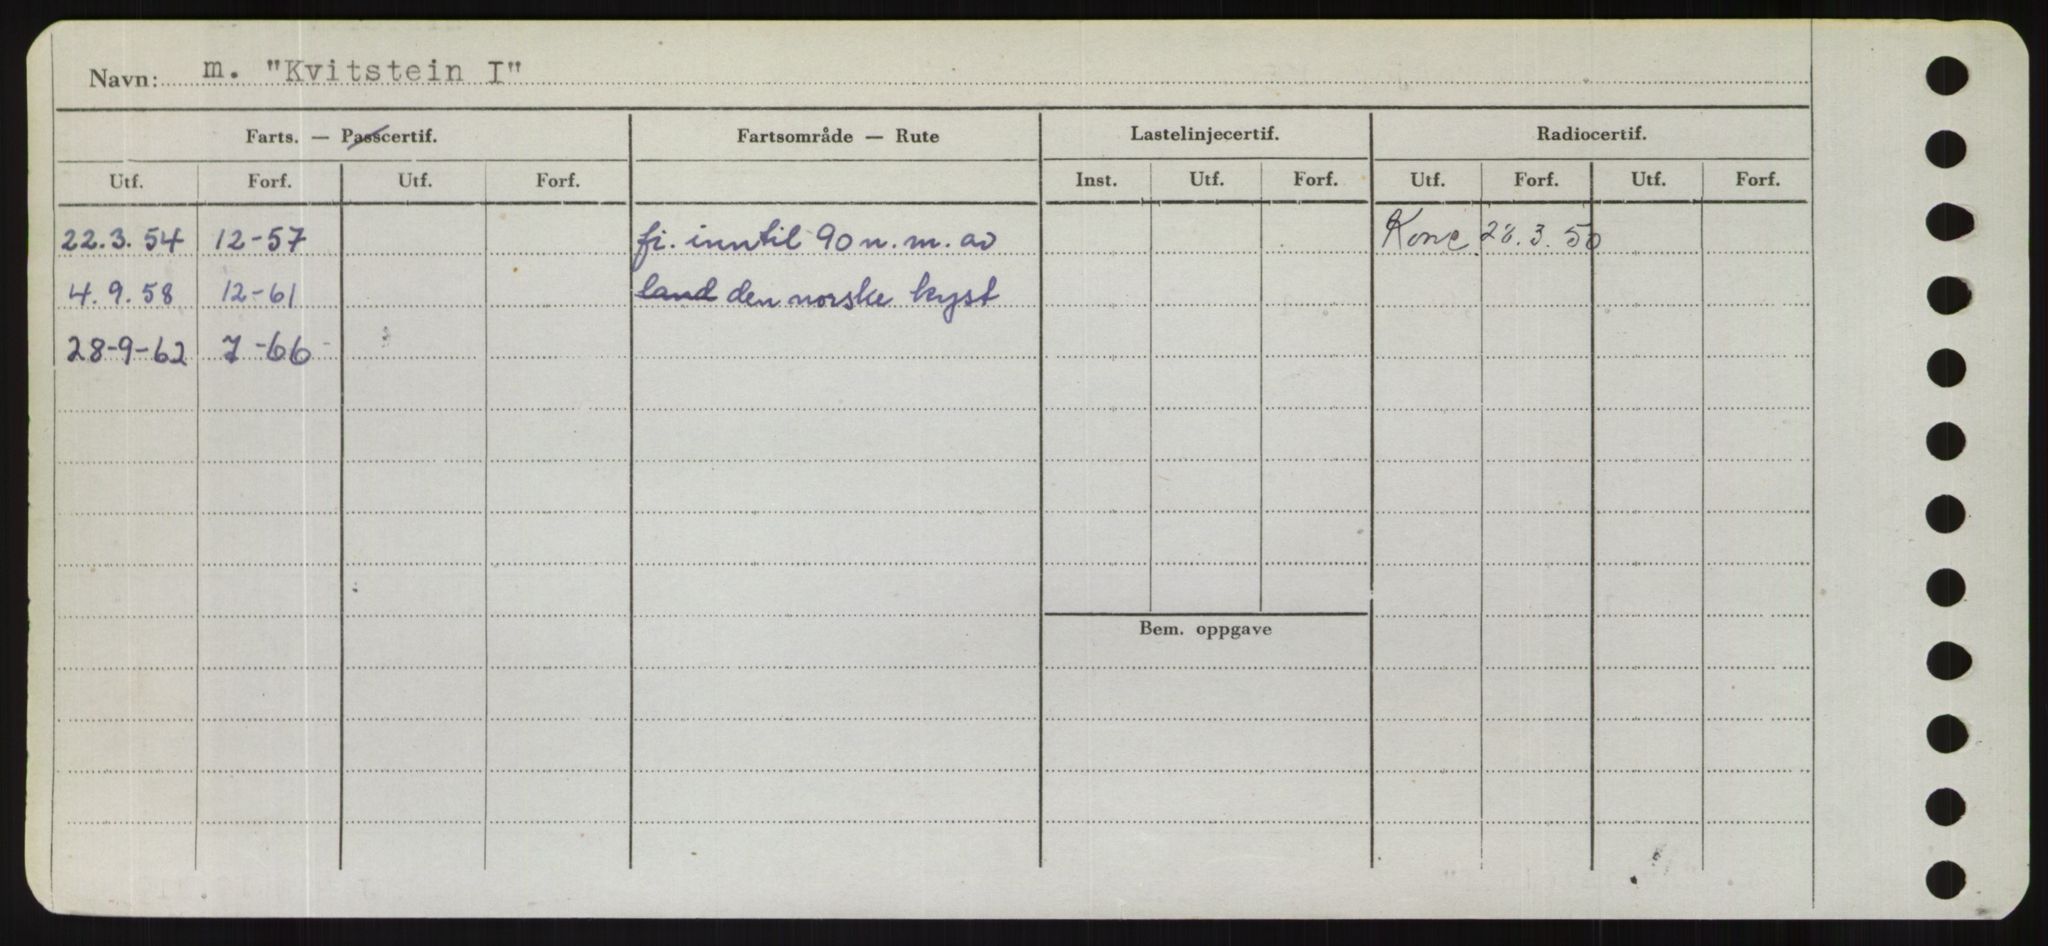 Navn: m. "Kvitstein I"
Farts. — Passcertif. Fartsområde — Rute Lastelinjecertif. Radiocertif.
Utf. Forf. Utf. Forf. Inst. Utf. Forf. Utf. Forf. Utf. Forf.
22.3.54 12-57 fi. inntil 90 n.m. av Konc 28.3.50
4.9.58 12-61 land den norske kyst
28-9-62 7-66
Bem. oppgave